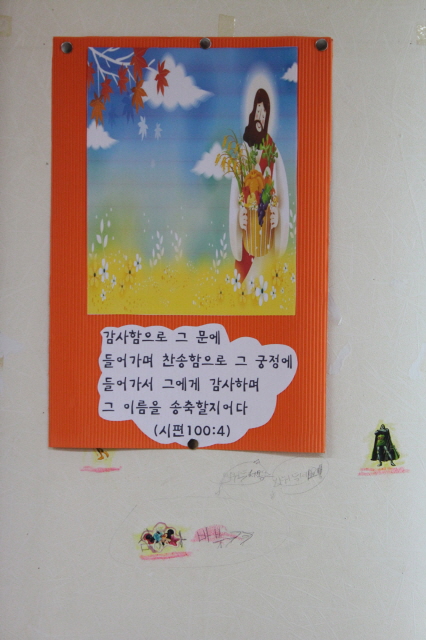 감사함으로 그 문에
들어가며 찬송함으로 그 궁정에
들어가서 그에게 감사하며
그 이름을 송축할지어다
(시편100:4)